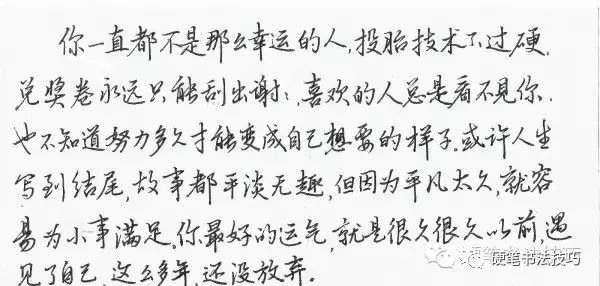 你一直都不是那么幸运的人,投胎技术不过硬,
兑奖卷永远只能刮出谢谢,喜欢的人总是看不见你.
也不知道努力多久才能变成自己想要的样子.或许人生
写到结尾,故事都平淡无趣,但因为平凡太久,就容
易为小事满足,你最好的运气,就是很久很久以前,遇
见了自己,这么多年,还没放弃.
硬笔书法技巧